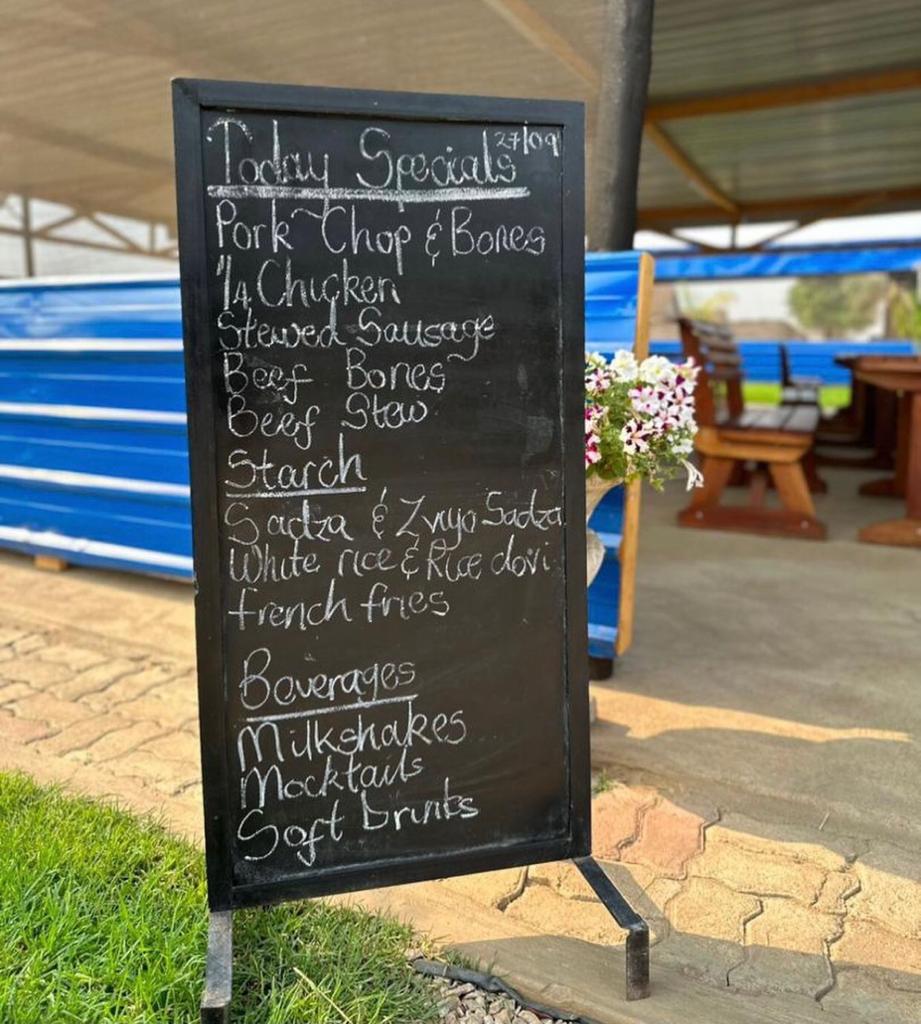 Today Specials 27/09
Pork Chop & Bones
1/4 Chicken
Stewed Sausage
Beef Bones
Beef Stew
Starch
Sadza & Zviyo Sadza
White rice & Rice dovi
french fries
Beverages
Milkshakes
Mocktails
Soft Drinks